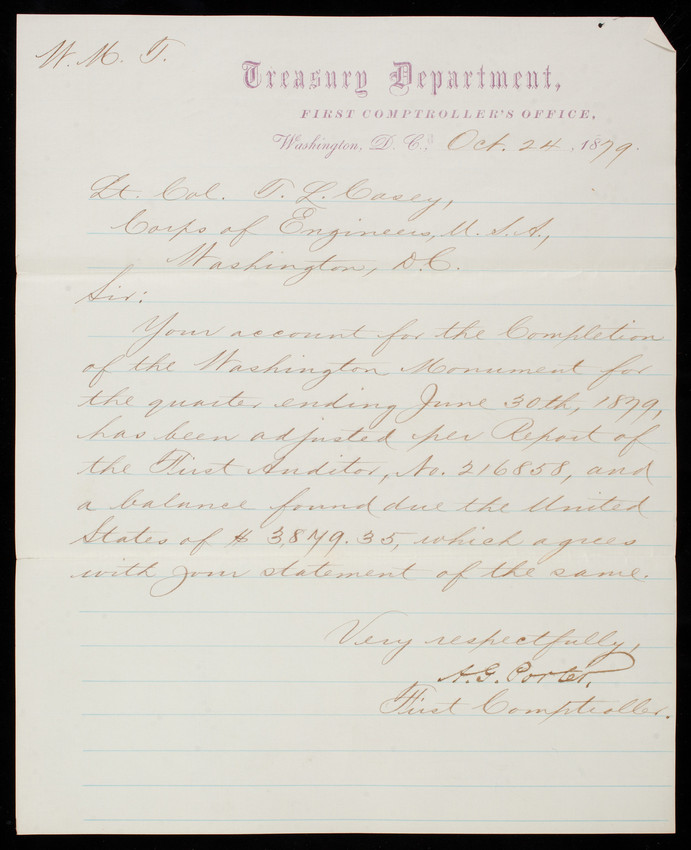 W. M. T.
Treasury Department,
FIRST COMPTROLLER'S OFFICE,
Washington, D. C., Oct. 24, 1879.
Lt. Col. T. L. Casey,
Corps of Engineers, U. S. A.,
Washington, D.C.
Sir:
Your account for the Completion
of the Washington Monument for
the quarter ending June 30th, 1879,
has been adjusted per Report of
the First Auditor, No. 216858, and
a balance found due the United
States of $ 3,879.35, which agrees
with your statement of the same.
Very respectfully,
A. G. Porter,
First Comptroller.